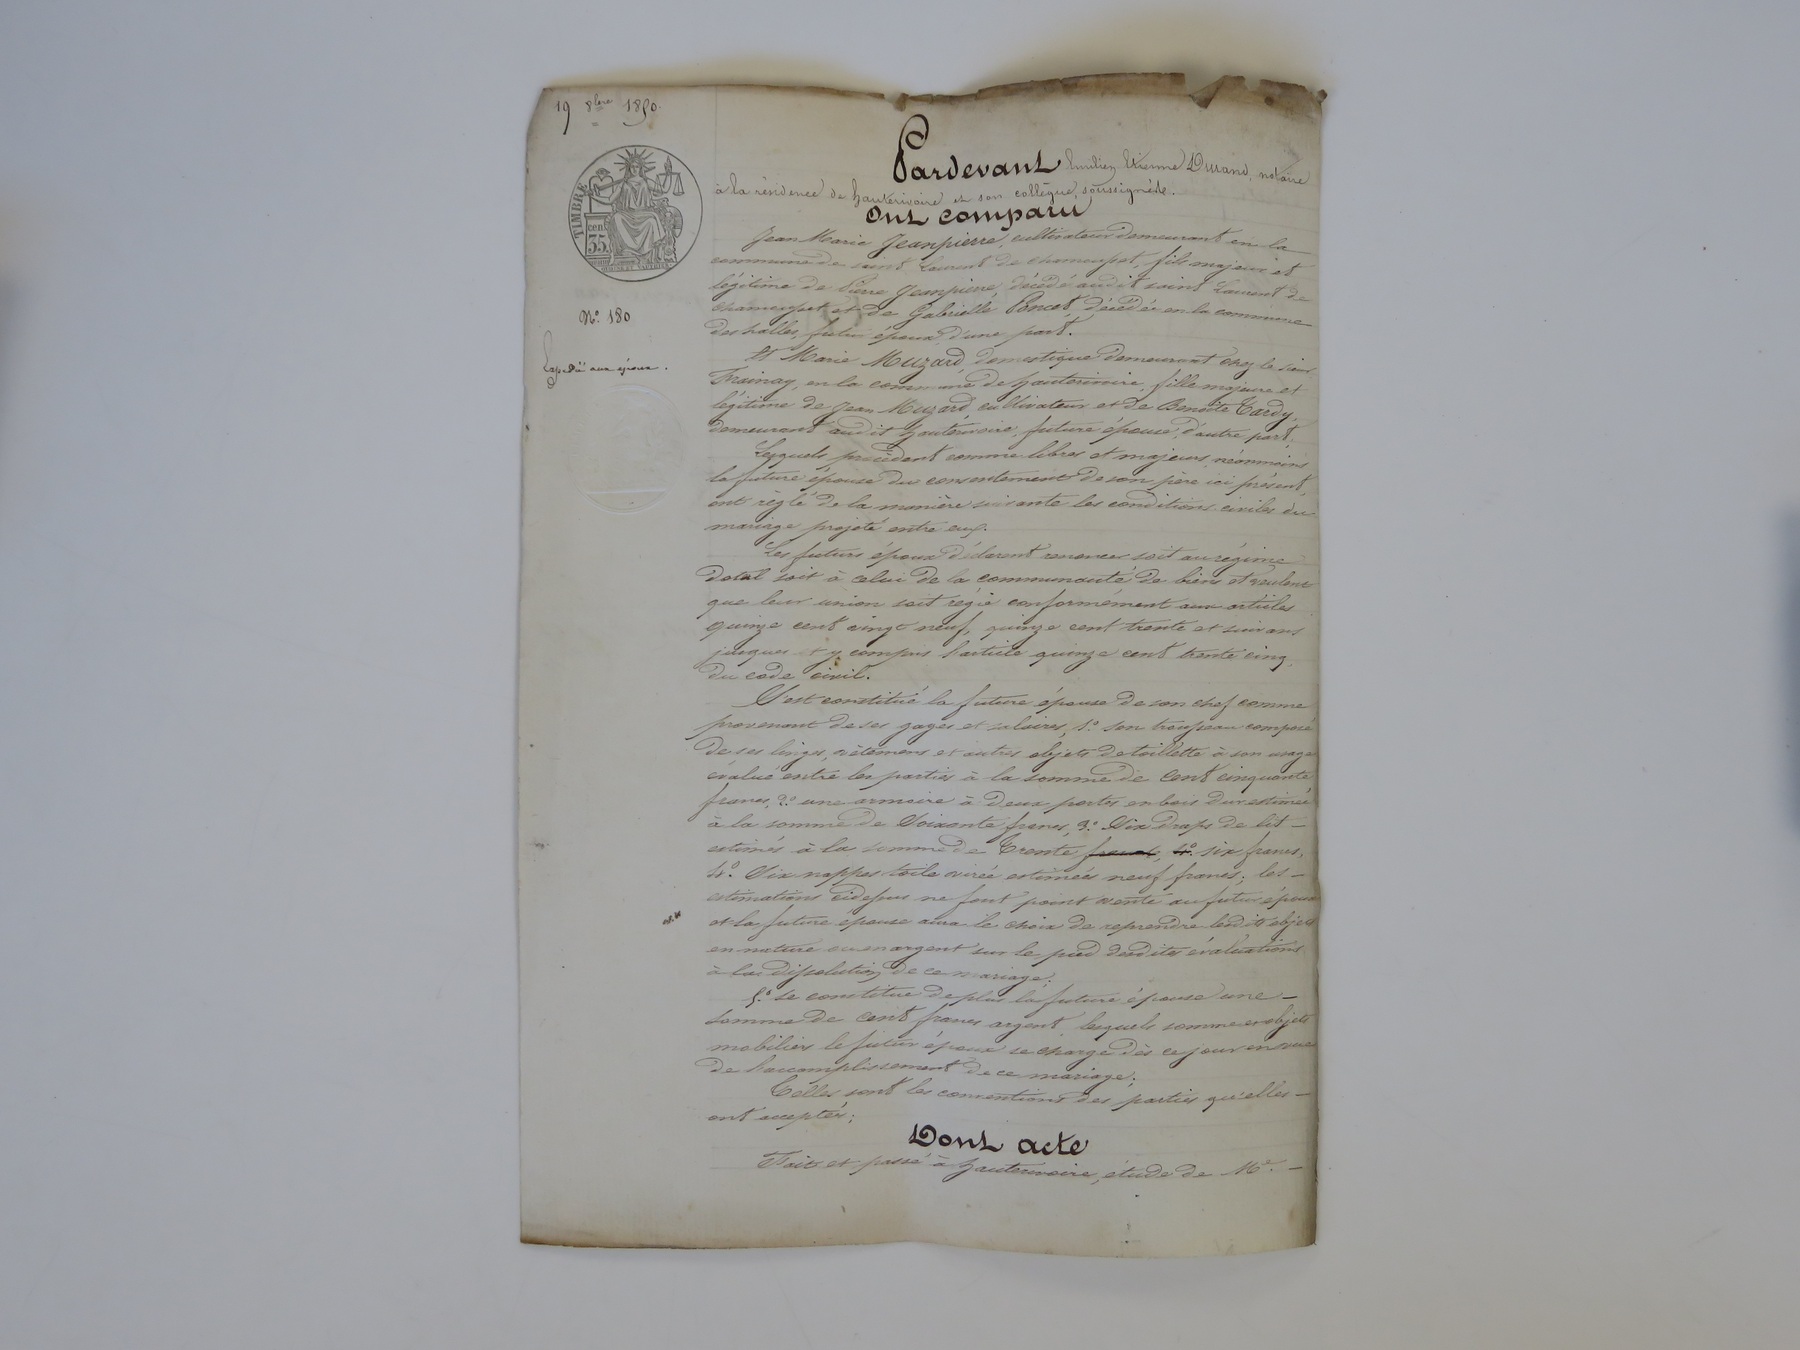 19 8bre 1850.
TIMBRE
cent
35
No. 180
Expédié aux époux.
Pardevant Emilien Etienne Durand, notaire
à la résidence de hauterivoire et son collègue, soussignés.
Ont comparu
Jean Marie Jeanpierre, cultivateur demeurant en la
commune de saint Laurent de chamousset, fils majeur et
légitime de Pierre Jeanpierre, décédé audit saint Laurent de
chamousset et de Gabrielle Poncet, décédée en la commune
des halles, futur époux, d'une part.
Et Marie Muzard, domestique demeurant chez le sieur
Froinay, en la commune de hauterivoire, fille majeure et
légitime de Jean Muzard, cultivateur et de Benoîte Tardy,
demeurant audit hauterivoire, future épouse, d'autre part;
Lesquels procédant comme libres et majeurs, néanmoins
la future épouse du consentement de son père ici présent,
ont réglé de la manière suivante les conditions civiles du
mariage projeté entre eux.
Les futurs époux déclarent renoncer soit au régime
dotal soit à celui de la communauté de biens et veulent
que leur union soit régie conformément aux articles
quinze cent vingt neuf, quinze cent trente et suivans
jusques et y compris l'article quinze cent trente cinq
du code civil.
S'est constitué la future épouse de son chef comme
provenant de ses gages et salaires, 1o. son trousseau composé
de ses linges, vêtemens et autres objets de toillette à son usage
évalué entre les parties à la somme de Cent cinquante
francs, 2o. une armoire à deux portes en bois dur estimée
à la somme de Soixante francs, 3o. Six draps de lit
estimés à la somme de Trente francs, 4o. six francs,
4o. Six nappes toile cirée estimées neuf francs; les
estimations cidessus ne font point vente au futur époux
et la future épouse aura le choix de reprendre lesdits objets
en nature ou en argent sur le pied desdites évaluations
à la dissolution de ce mariage;
5o. Se constitue de plus la future épouse une
somme de cent francs argent, lesquels somme et objets
mobiliers le futur époux se charge dès ce jour en vue
de l'accomplissement de ce mariage;
Telles sont les conventions des parties qu'elles
ont acceptées;
Dont acte
Fait et passé à hauterivoire, étude de Me.